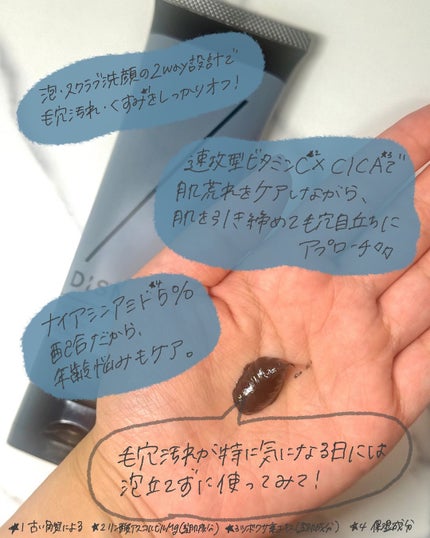 泡・スクラブ洗顔の2way設計で
毛穴汚れ・くすみ*1をしっかりオフ!
速攻型ビタミンC*2×CICA*3で
肌荒れをケアしながら、
肌を引き締めて毛穴目立ちに
アプローチ
DiS
ナイアシンアミド*4 5%
配合だから、
年齢悩みもケア。
毛穴汚れが特に気になる日には
泡立てずに使ってみて!
*1 古い角質による *2 リン酸アスコルビルMg(整肌成分) *3 ツボクサ葉エキス(整肌成分) *4 保湿成分